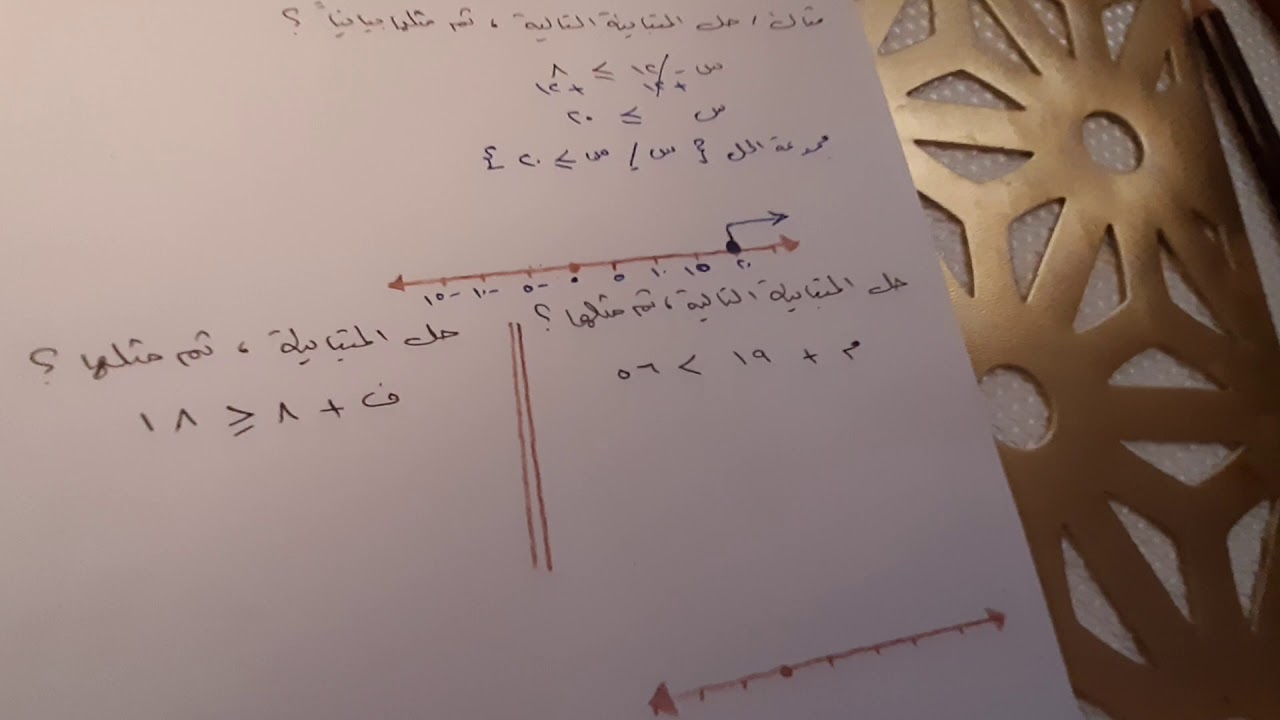 مثال / حل المتباينة التالية ، ثم مثلها بيانياً ؟
س - ١٢ ≥ ٨
+ ١٢ + ١٢
س ≥ ٢٠
مجموعة الحل { س / س ≥ ٢٠ }
-١٥ -١٠ -٥ ٠ ٥ ١٠ ١٥ ٢٠
حل المتباينة التالية ، ثم مثلها ؟
م + ١٩ > ٥٦
حل المتباينة ، ثم مثلها ؟
ف + ٨ ≥ ١٨